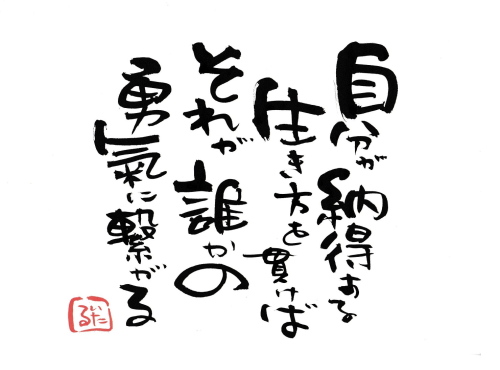 自分が納得する
生き方を貫けば
それが誰かの
勇氣に繋がる
いたる